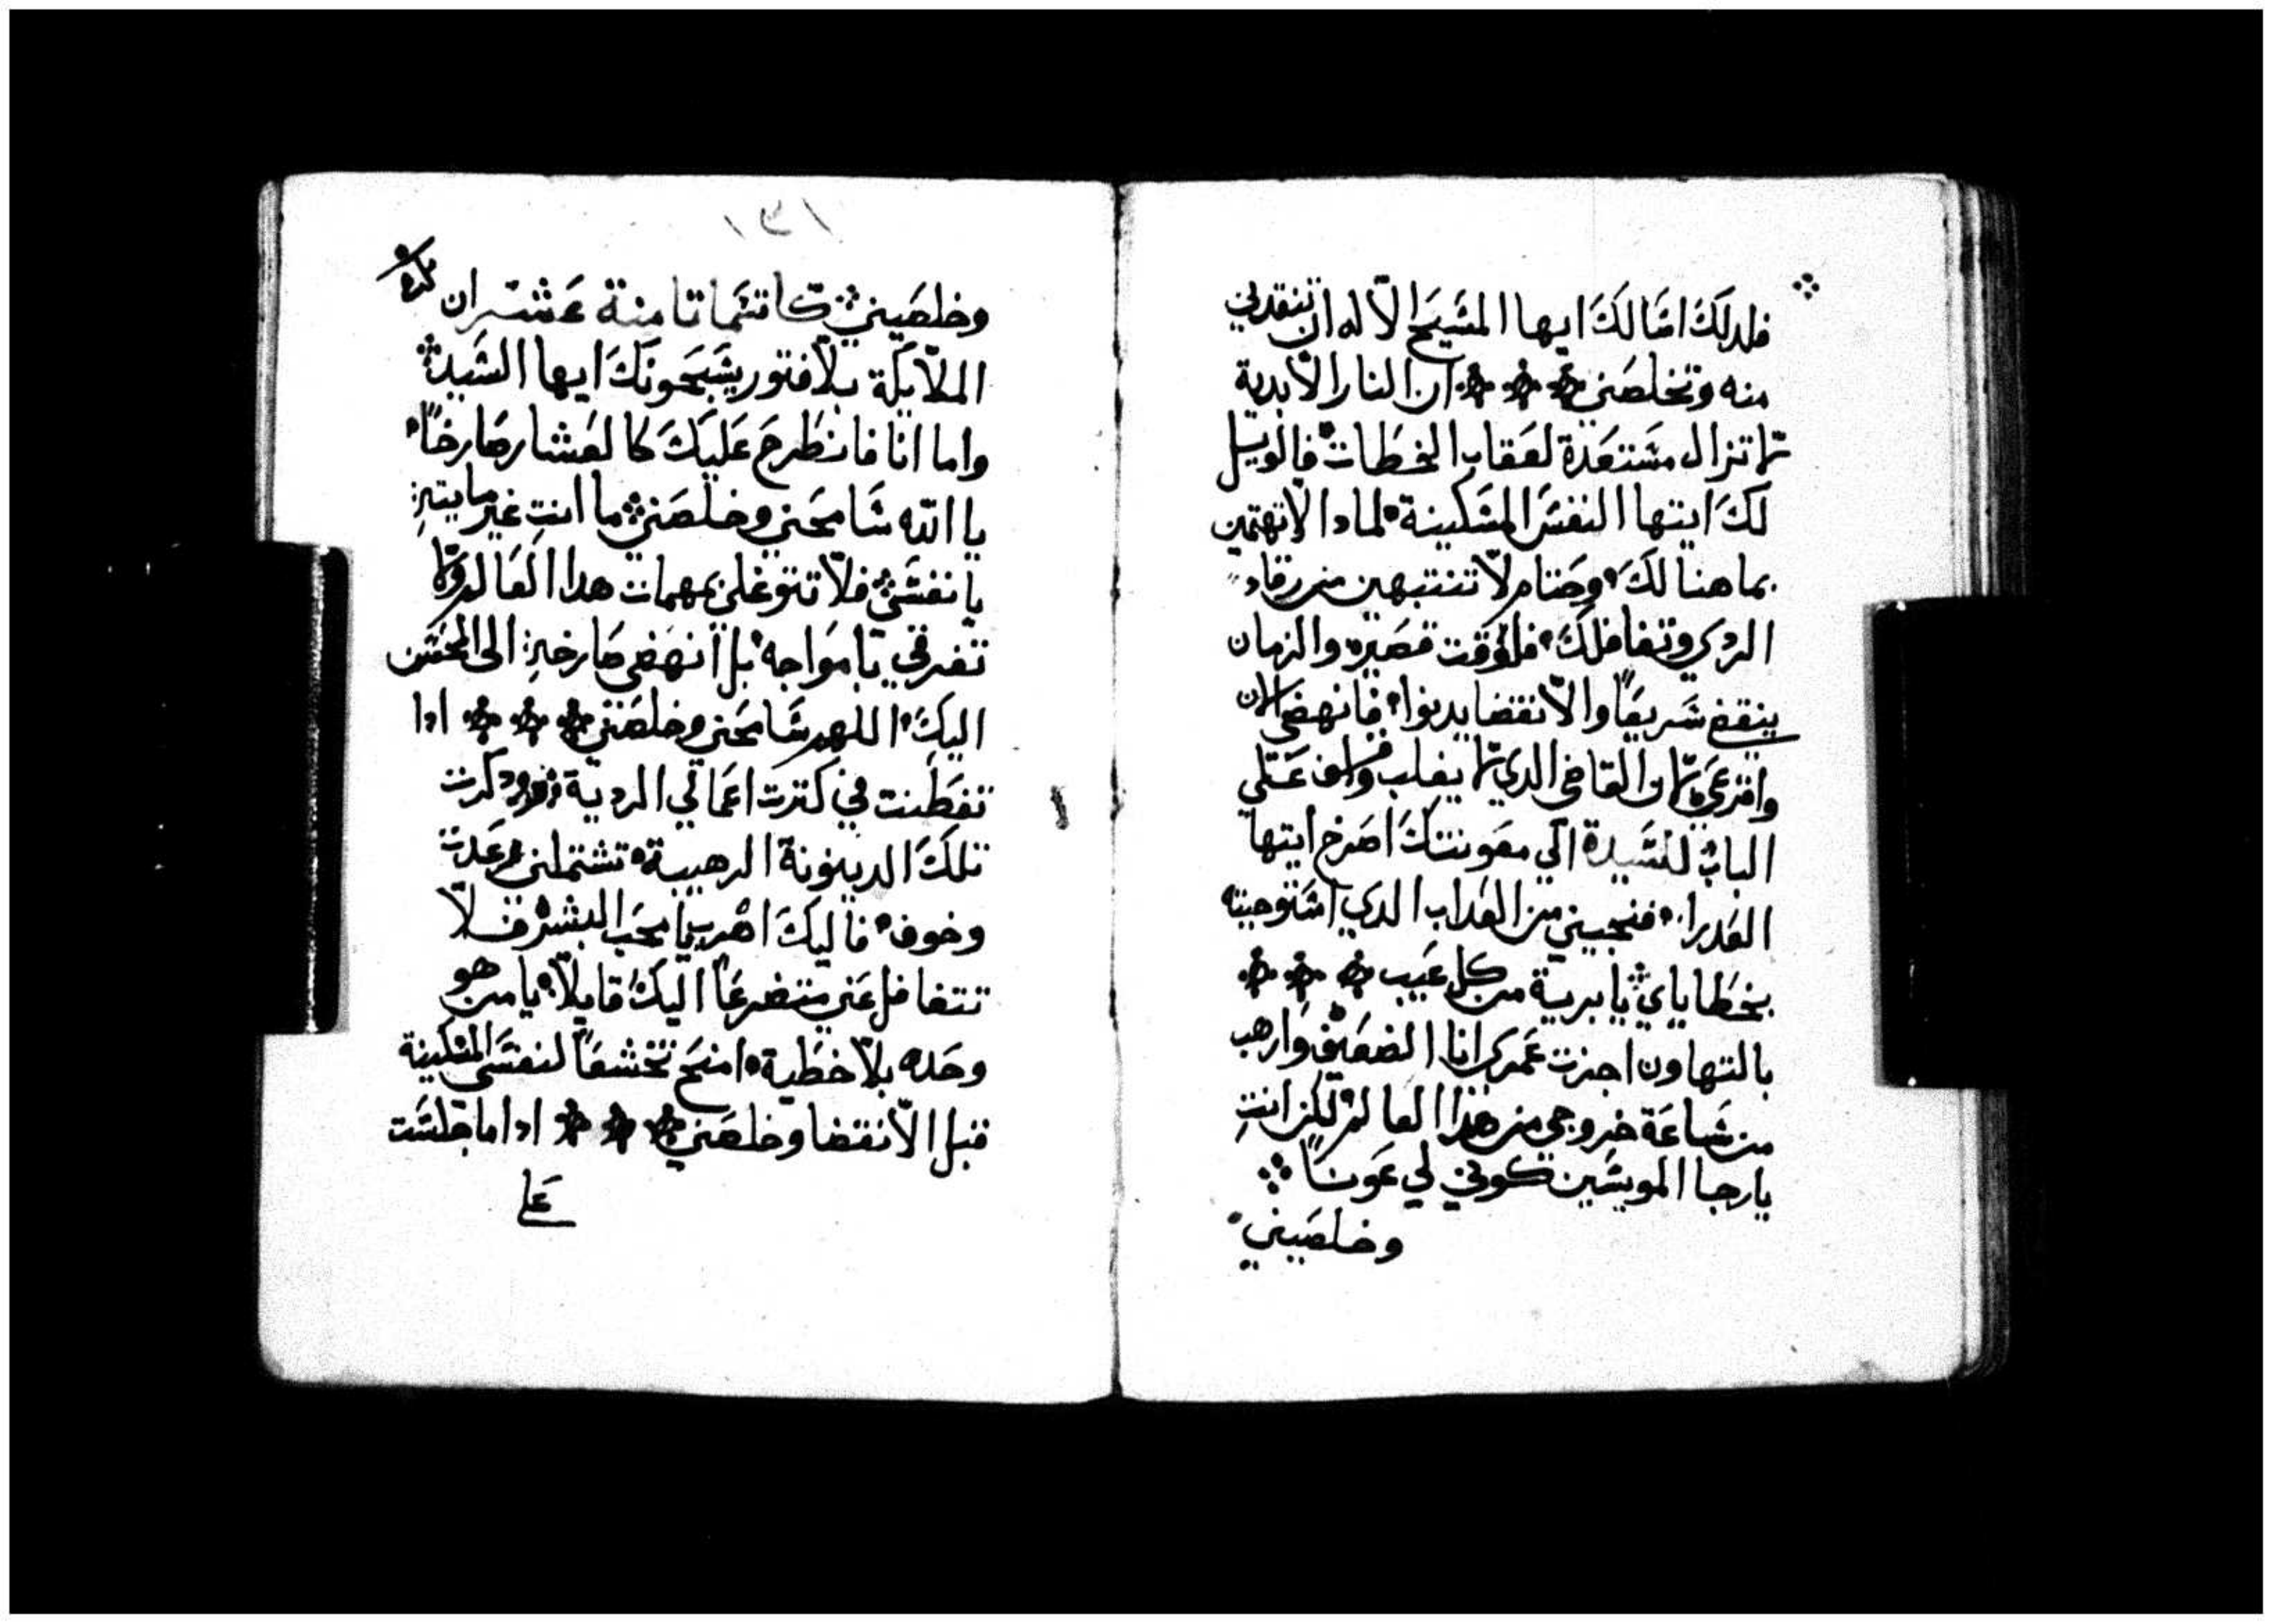 فلدلك اسالك ايها المسيح الاله ان تنقدني
منه وتخلصني ان النار الابدية
لا تزال مستعدة لعقاب الخطات فالويل
لك ايتها النفس المسكينة لمادا لا تهتمين
بما هنالك وحتام لا تنتبهين من رقاد
الردي وتغافلك فالوقت قصير والزمان
ينقضي سريعًا والانقضا يدنوا فانهضي الان
واقرعي لان القاضي الدي لا يغلب واقف علي
الباب للسيدة الي معونتك اصرخ ايتها
العدرا فنجيني من العداب الدي استوجبته
بخطاياي يا برية من كل عيب
بالتهاون اجزت عمري انا الضعيف وارهب
من ساعة خروجي من هدا العالم لكن انتِ
يا رجا المويسين كوني لي عونًا
وخلصيني
١٣١
وخلصيني كاتسما تامنة عشر ان
الملايكة بلا فتور يسبحونك ايها السيد
واما انا فانطرح عليك كالعشار صارخًا
يا الله سامحني وخلصني ما انتِ غير مايتةٍ
يا نفسي فلا تتوغلي بمهمات هدا العالم ولا
تغرقي بامواجه بل انهضي صارخةٍ الى المحسن
اليك اللهم سامحني وخلصني ادا
تفطنت في كترت اعمالي الردية ودكرت
تلك الدينونة الرهيبة تشتملني رعدت
وخوف فاليك اهرب يا محب البشر فلا
تتغافل عني متضرعًا اليك قايلًا يا من هو
وحده بلا خطية امنح تخشعًا لنفسي المسكينة
قبل الانقضا وخلصني ادا ما جلست
علي